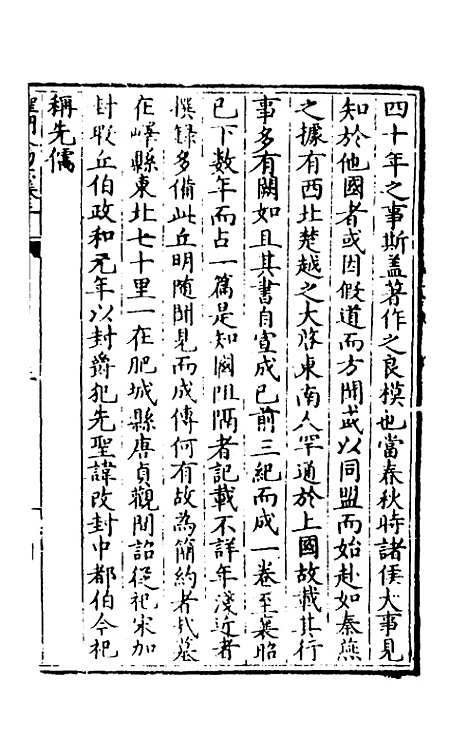 四十年之事斯盖著作之良模也當春秋時諸侯大事見
知於他國者或因假道而方聞或以同盟而始赴如秦燕
之據有西北楚越之大啓東南人罕通於上國故載其行
事多有闕如且其書自宣成已前三紀而成一卷至襄昭
已下數年而占一篇是知國阻隔者記載不詳年淺近者
撰録多備此丘明隨聞見而成傳何有故為簡約者哉墓
在嶧縣東北七十里一在肥城縣唐貞觀間詔從祀宋加
封瑕丘伯政和元年以封爵犯先聖諱改封中都伯今祀
稱先儒